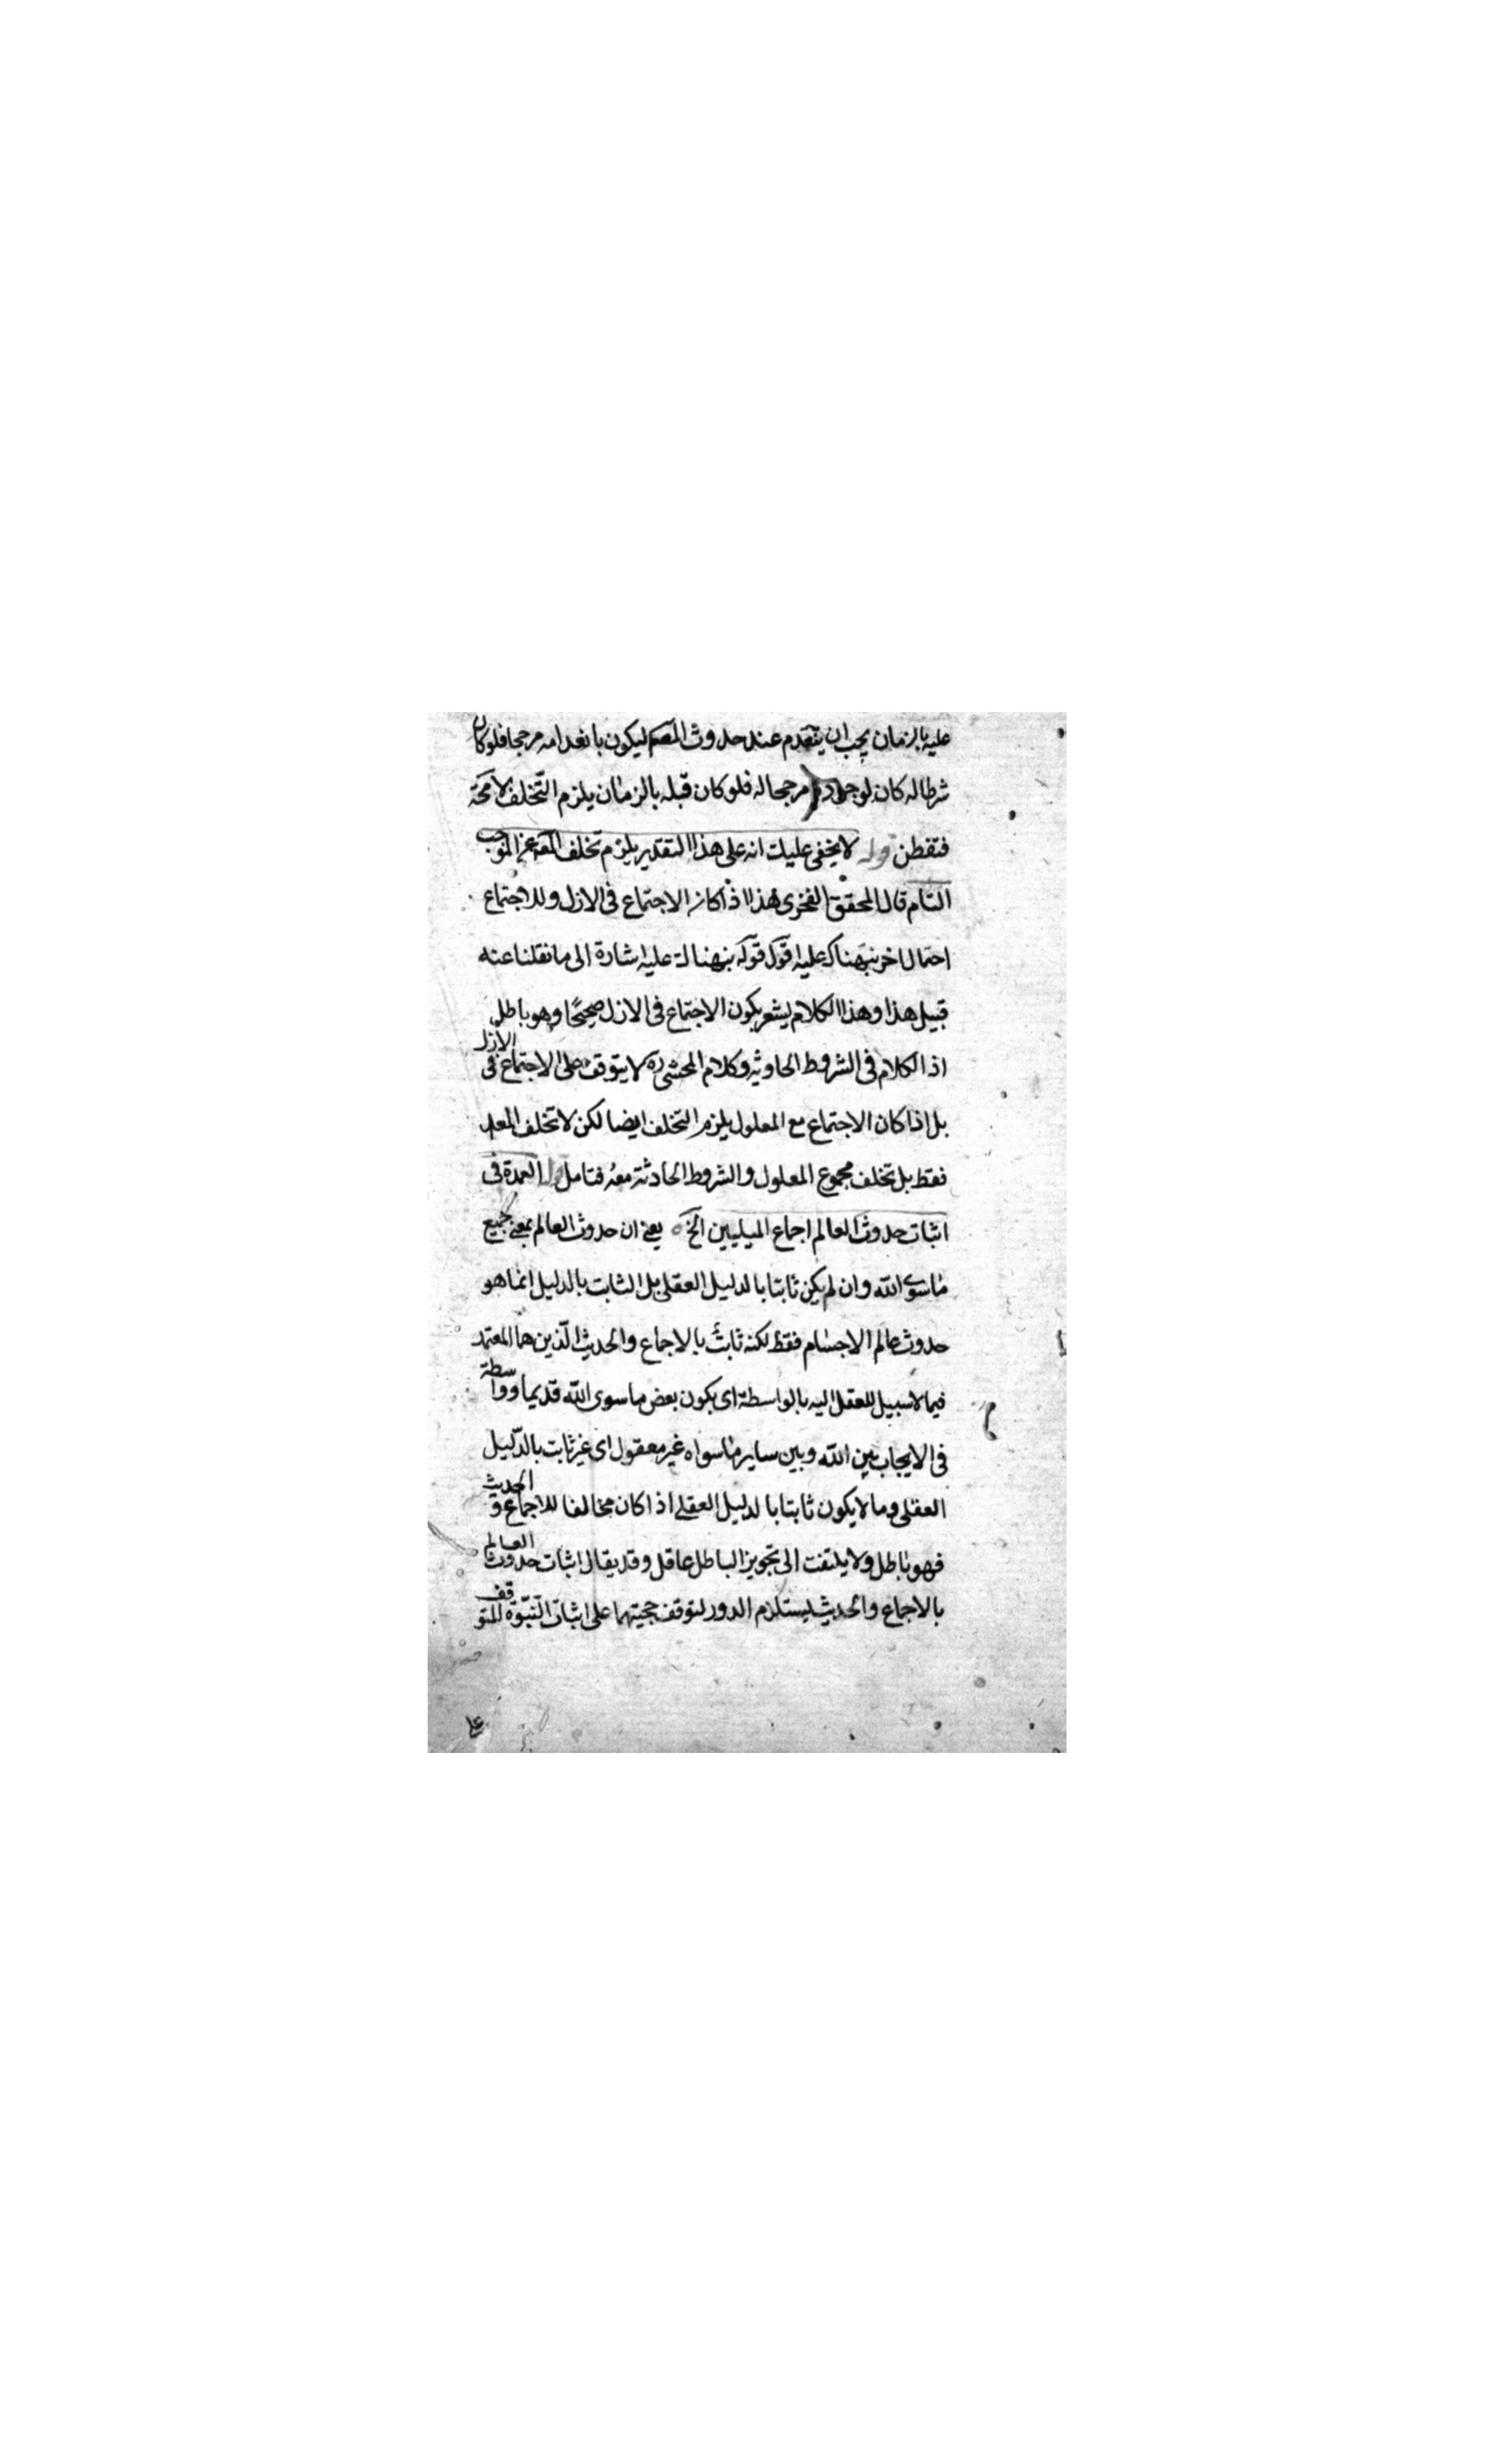 عليه بالزمان يجب ان ينعدم عند حدوث ليكون بانعدامه مرجحا فلو كان
شرطا له كان لوجوده مرجحا له فلو كان قبله بالزمان يلزم التخلف لا محة
فتفطن قوله لا يخفى عليك انه على هذا التقدير يلزم تخلف المعه عن الموجب
التام قال المحقق الفخرى هذا اذا كان الاجتماع فى الازل وللاجتماع
احتمال اخر نبهناك عليه اقول قوله نبهناك عليه اشارة الى ما نقلنا عنه
قبيل هذا وهذا الكلام يشعر بكون الاجتماع فى الازل صحيحًا وهو باطل
اذ الكلام فى الشروط الحادثه وكلام المحشى ره لا يتوقف على الاجتماع فى الازل
بل اذا كان الاجتماع مع المعلول يلزم التخلف ايضا لكن لا تخلف المعلـ
فقط بل تخلف مجموع المعلول والشروط الحادثة معه فتامل قوله العمدة فى
اثبات حدوث العالم اجماع المليين الخ يعنى ان حدوث العالم بمعنى جميع
ما سوى الله وان لم يكن ثابتا بالدليل العقلى بل الثابت بالدليل انما هو
حدوث عالم الاجسام فقط لكنه ثابت بالاجماع والحديث الّذين هما المعتمد
فيما لا سبيل للعقل اليه بالواسطة اى بكون بعض ما سوى الله قديما وواسطة
فى الايجاب بين الله وبين ساير ما سواه غير معقول اى غير ثابت بالدّليل
العقلى وما لا يكون ثابتا بالدليل العقلى اذا كان مخالفا للاجماع و الحديث
فهو باطل ولا يلتفت الى تجويز الباطل عاقل وقد يقال اثبات حدوث العالم
بالاجماع والحديث يستلزم الدور لتوقف حجيتهما على اثبات النّبوّة المتوقف